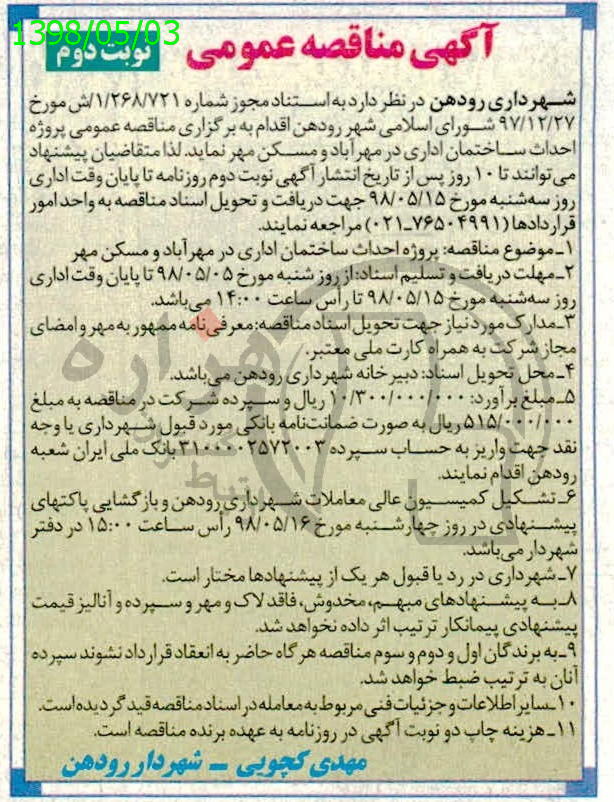 1398/05/03
آگهی مناقصه عمومی
نوبت دوم
شهرداری رودهن در نظر دارد به استناد مجوز شماره ۱/۲۶۸/۷۲۱/ش مورخ
۹۷/۱۲/۲۷ شورای اسلامی شهر رودهن اقدام به برگزاری مناقصه عمومی پروژه
احداث ساختمان اداری در مهرآباد و مسکن مهر نماید. لذا متقاضیان پیشنهاد
می‌توانند تا ۱۰ روز پس از تاریخ انتشار آگهی نوبت دوم روزنامه تا پایان وقت اداری
روز سه‌شنبه مورخ ۹۸/۰۵/۱۵ جهت دریافت و تحویل اسناد مناقصه به واحد امور
قراردادها (۷۶۵۰۴۹۹۱-۰۲۱) مراجعه نمایند.
۱-موضوع مناقصه: پروژه احداث ساختمان اداری در مهرآباد و مسکن مهر
۲-مهلت دریافت و تسلیم اسناد: از روز شنبه مورخ ۹۸/۰۵/۰۵ تا پایان وقت اداری
روز سه‌شنبه مورخ ۹۸/۰۵/۱۵ تا رأس ساعت ۱۴:۰۰ می‌باشد.
۳-مدارک مورد نیاز جهت تحویل اسناد مناقصه: معرفی‌نامه ممهور به مهر و امضای
مجاز شرکت به همراه کارت ملی معتبر.
۴-محل تحویل اسناد: دبیرخانه شهرداری رودهن می‌باشد.
۵-مبلغ برآورد: ۱۰/۳۰۰/۰۰۰/۰۰۰ ریال و سپرده شرکت در مناقصه به مبلغ
۵۱۵/۰۰۰/۰۰۰ ریال به صورت ضمانت‌نامه بانکی مورد قبول شهرداری یا وجه
نقد جهت واریز به حساب سپرده ۳۱۰۰۰۰۲۵۷۲۰۰۳ بانک ملی ایران شعبه
رودهن اقدام نمایند.
۶-تشکیل کمیسیون عالی معاملات شهرداری رودهن و بازگشایی پاکتهای
پیشنهادی در روز چهارشنبه مورخ ۹۸/۰۵/۱۶ رأس ساعت ۱۵:۰۰ در دفتر
شهردار می‌باشد.
۷-شهرداری در رد یا قبول هر یک از پیشنهادها مختار است.
۸-به پیشنهادهای مبهم، مخدوش، فاقد لاک و مهر و سپرده و آنالیز قیمت
پیشنهادی پیمانکار ترتیب اثر داده نخواهد شد.
۹-به برندگان اول و دوم و سوم مناقصه هرگاه حاضر به انعقاد قرارداد نشوند سپرده
آنان به ترتیب ضبط خواهد شد.
۱۰-سایر اطلاعات و جزئیات فنی مربوط به معامله در اسناد مناقصه قید گردیده است.
۱۱-هزینه چاپ دو نوبت آگهی در روزنامه به عهده برنده مناقصه است.
مهدی کچویی - شهردار رودهن
هزاره